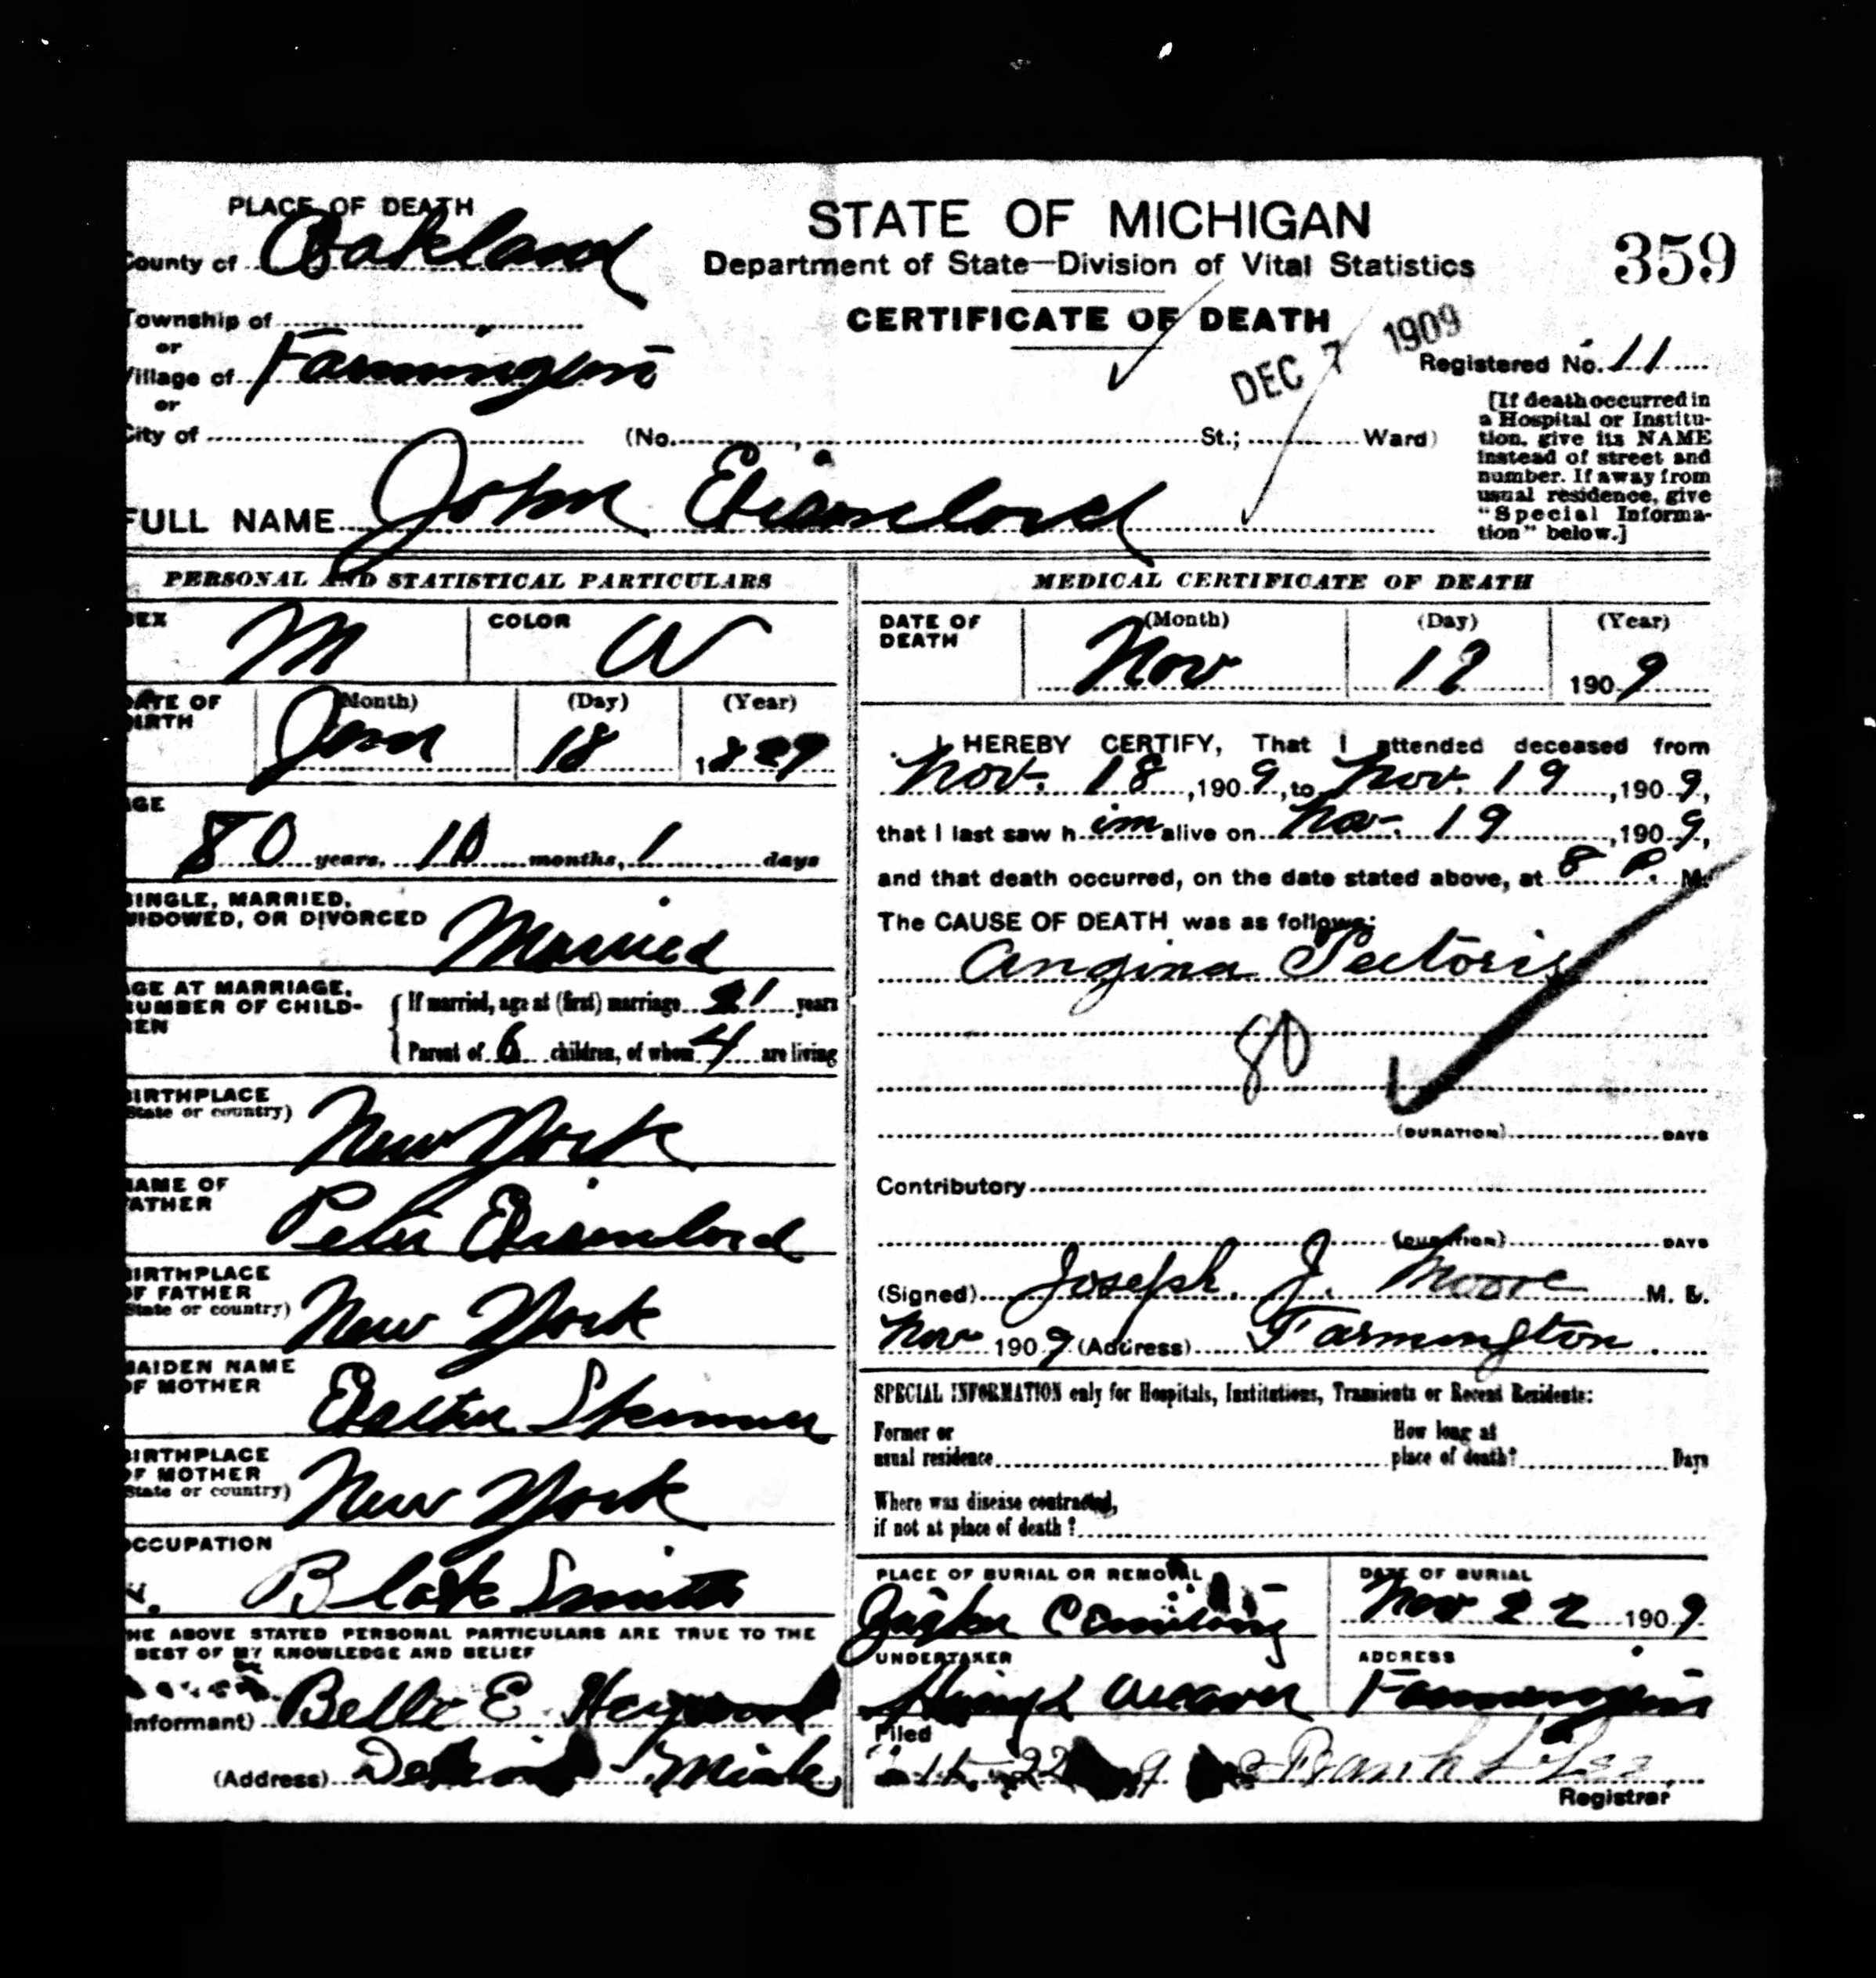 PLACE OF DEATH
County of Oakland
Township of
or
Village of Farmington
or
City of (No. , St.; Ward)
STATE OF MICHIGAN
Department of State—Division of Vital Statistics
CERTIFICATE OF DEATH
359
DEC 7 1909
Registered No. 11
[If death occurred in
a Hospital or Institu-
tion, give its NAME
instead of street and
number. If away from
usual residence, give
"Special Informa-
tion" below.]
FULL NAME John Eisenlord
PERSONAL AND STATISTICAL PARTICULARS
SEX M COLOR W
DATE OF BIRTH (Month) Jan (Day) 18 (Year) 1829
AGE
80 years, 10 months, 1 days
SINGLE, MARRIED,
WIDOWED, OR DIVORCED Married
AGE AT MARRIAGE,
NUMBER OF CHILD-
REN
If married, age at (first) marriage 21 years
Parent of 6 children, of whom 4 are living
BIRTHPLACE
(State or country) New York
NAME OF
FATHER Peter Eisenlord
BIRTHPLACE
OF FATHER
(State or country) New York
MAIDEN NAME
OF MOTHER Skinner
BIRTHPLACE
OF MOTHER
(State or country) New York
OCCUPATION
Black Smith
THE ABOVE STATED PERSONAL PARTICULARS ARE TRUE TO THE
BEST OF MY KNOWLEDGE AND BELIEF
(Informant) Belle E. Heywood
(Address) Detroit Mich
MEDICAL CERTIFICATE OF DEATH
DATE OF
DEATH (Month) Nov (Day) (Year) 1909
I HEREBY CERTIFY, That I attended deceased from
Nov. 18, 1909, to Nov. 19, 1909,
that I last saw him alive on Nov. 19, 1909,
and that death occurred, on the date stated above, at 8 P. M.
The CAUSE OF DEATH was as follows:
Angina Pectoris
80
(DURATION) DAYS
Contributory
(DURATION) DAYS
(Signed) Joseph J. Moore M. D.
Nov 1909 (Address) Farmington
SPECIAL INFORMATION only for Hospitals, Institutions, Transients or Recent Residents:
Former or
usual residence
How long at
place of death? Days
Where was disease contracted,
if not at place of death?
PLACE OF BURIAL OR REMOVAL
DATE OF BURIAL
Nov 22 1909
UNDERTAKER
Weaver
ADDRESS
Farmington
Filed
22 9
Registrar